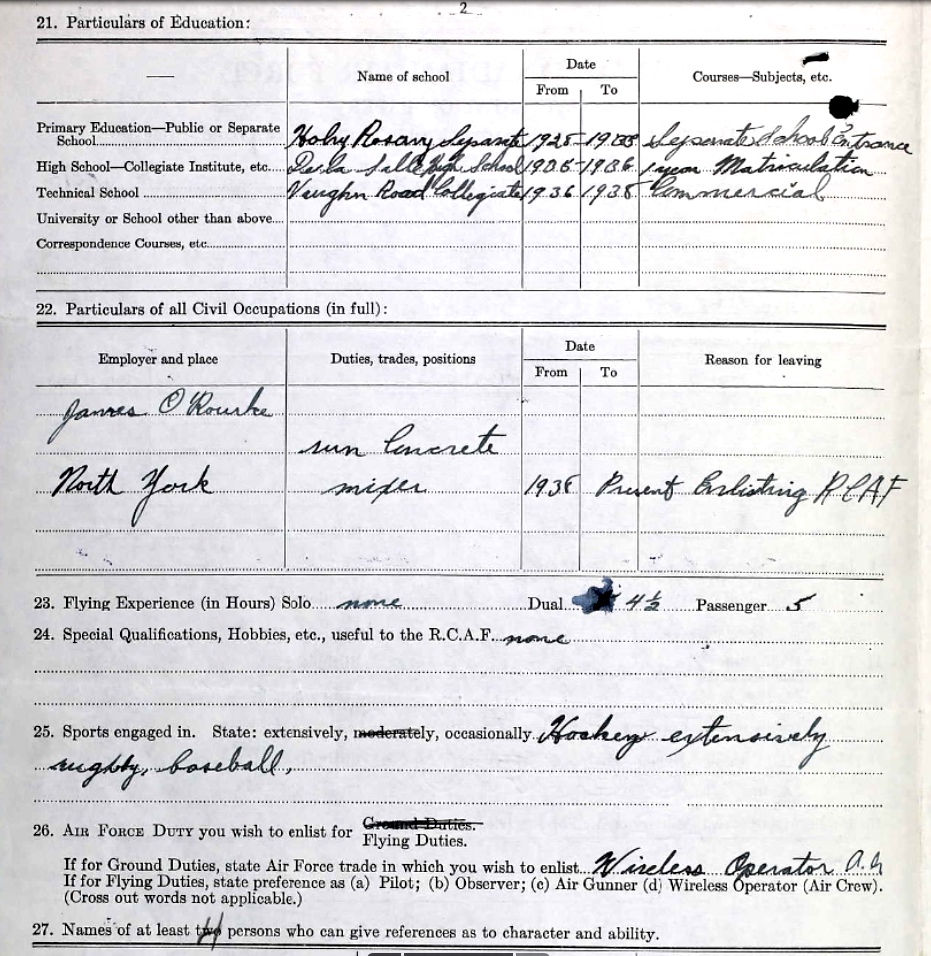 2
21. Particulars of Education:
Name of school
Date
From To
Courses—Subjects, etc.
Primary Education—Public or Separate
School Holy Rosary Separate 1928-1935 Separate School Entrance
High School—Collegiate Institute, etc. De la Salle High School 1935-1936 1 year Matriculation
Technical School Vaughn Road Collegiate 1936 1938 Commercial
University or School other than above
Correspondence Courses, etc
22. Particulars of all Civil Occupations (in full):
Employer and place
Duties, trades, positions
Date
From To
Reason for leaving
James O'Rourke
run Concrete
North York mixer 1938 Present Enlisting RCAF
23. Flying Experience (in Hours) Solo none Dual 4½ Passenger 5
24. Special Qualifications, Hobbies, etc., useful to the R.C.A.F. none
25. Sports engaged in. State: extensively, moderately, occasionally Hockey extensively
rugby, baseball,
26. AIR FORCE DUTY you wish to enlist for Ground Duties.
Flying Duties.
If for Ground Duties, state Air Force trade in which you wish to enlist Wireless Operator A.G
If for Flying Duties, state preference as (a) Pilot; (b) Observer; (c) Air Gunner (d) Wireless Operator (Air Crew).
(Cross out words not applicable.)
27. Names of at least two persons who can give references as to character and ability.